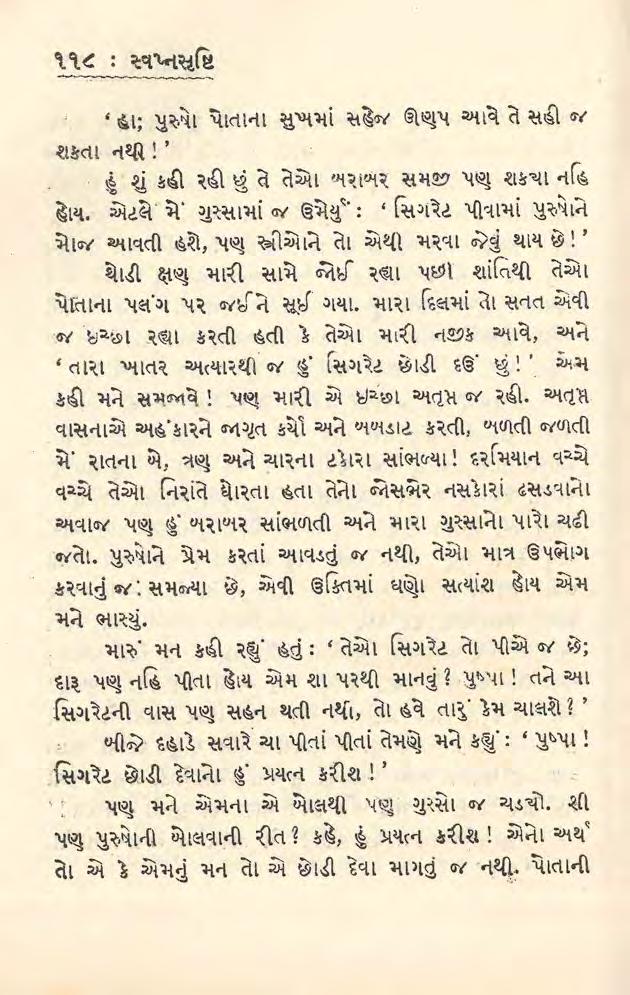 ૧૧૮ : સ્વપ્નસૃષ્ટિ
‘ હા; પુરુષો પોતાના સુખમાં સહેજ ઊણપ આવે તે સહી જ
શકતા નથી ! ’
હું શું કહી રહી છું તે તેઓ બરાબર સમજી પણ શક્યા નહિ
હોય. એટલે મેં ગુસ્સામાં જ ઉમેર્યું : ‘ સિગરેટ પીવામાં પુરુષોને
મોજ આવતી હશે, પણ સ્ત્રીઓને તો એથી મરવા જેવું થાય છે ! ’
થોડી ક્ષણ મારી સામે જોઈ રહ્યા પછી શાંતિથી તેઓ
પોતાના પલંગ પર જઈને સૂઈ ગયા. મારા દિલમાં તો સતત એવી
જ ઇચ્છા રહ્યા કરતી હતી કે તેઓ મારી નજીક આવે, અને
‘ તારા ખાતર અત્યારથી જ હું સિગરેટ છોડી દઉં છું ! ’ એમ
કહી મને સમજાવે ! પણ મારી એ ઇચ્છા અતૃપ્ત જ રહી. અતૃપ્ત
વાસનાએ અહંકારને જાગૃત કર્યો અને બબડાટ કરતી, બળતી જળતી
મેં રાતના બે, ત્રણ અને ચારના ટકોરા સાંભળ્યા ! દરમિયાન વચ્ચે
વચ્ચે તેઓ નિરાંતે ઘોરતા હતા તેનો જોસભેર નસકોરાં ઢસડવાનો
અવાજ પણ હું બરાબર સાંભળતી અને મારા ગુસ્સાનો પારો ચઢી
જતો. પુરુષોને પ્રેમ કરતાં આવડતું જ નથી, તેઓ માત્ર ઉપભોગ
કરવાનું જ સમજ્યા છે, એવી ઉક્તિમાં ઘણો સત્યાંશ હોય એમ
મને ભાસ્યું.
મારું મન કહી રહ્યું હતું : ‘ તેઓ સિગરેટ તો પીએ જ છે;
દારૂ પણ નહિ પીતા હોય એમ શા પરથી માનવું ? પુષ્પા ! તને આ
સિગરેટની વાસ પણ સહન થતી નથી, તો હવે તારું કેમ ચાલશે ? ’
બીજે દહાડે સવારે ચા પીતાં પીતાં તેમણે મને કહ્યું : ‘ પુષ્પા !
સિગરેટ છોડી દેવાનો હું પ્રયત્ન કરીશ ! ’
પણ મને એમના એ બોલથી પણ ગુસ્સો જ ચડ્યો. શી
પણ પુરુષોની બોલવાની રીત ? કહે, હું પ્રયત્ન કરીશ ! એનો અર્થ
તો એ કે એમનું મન તો એ છોડી દેવા માગતું જ નથી. પોતાની